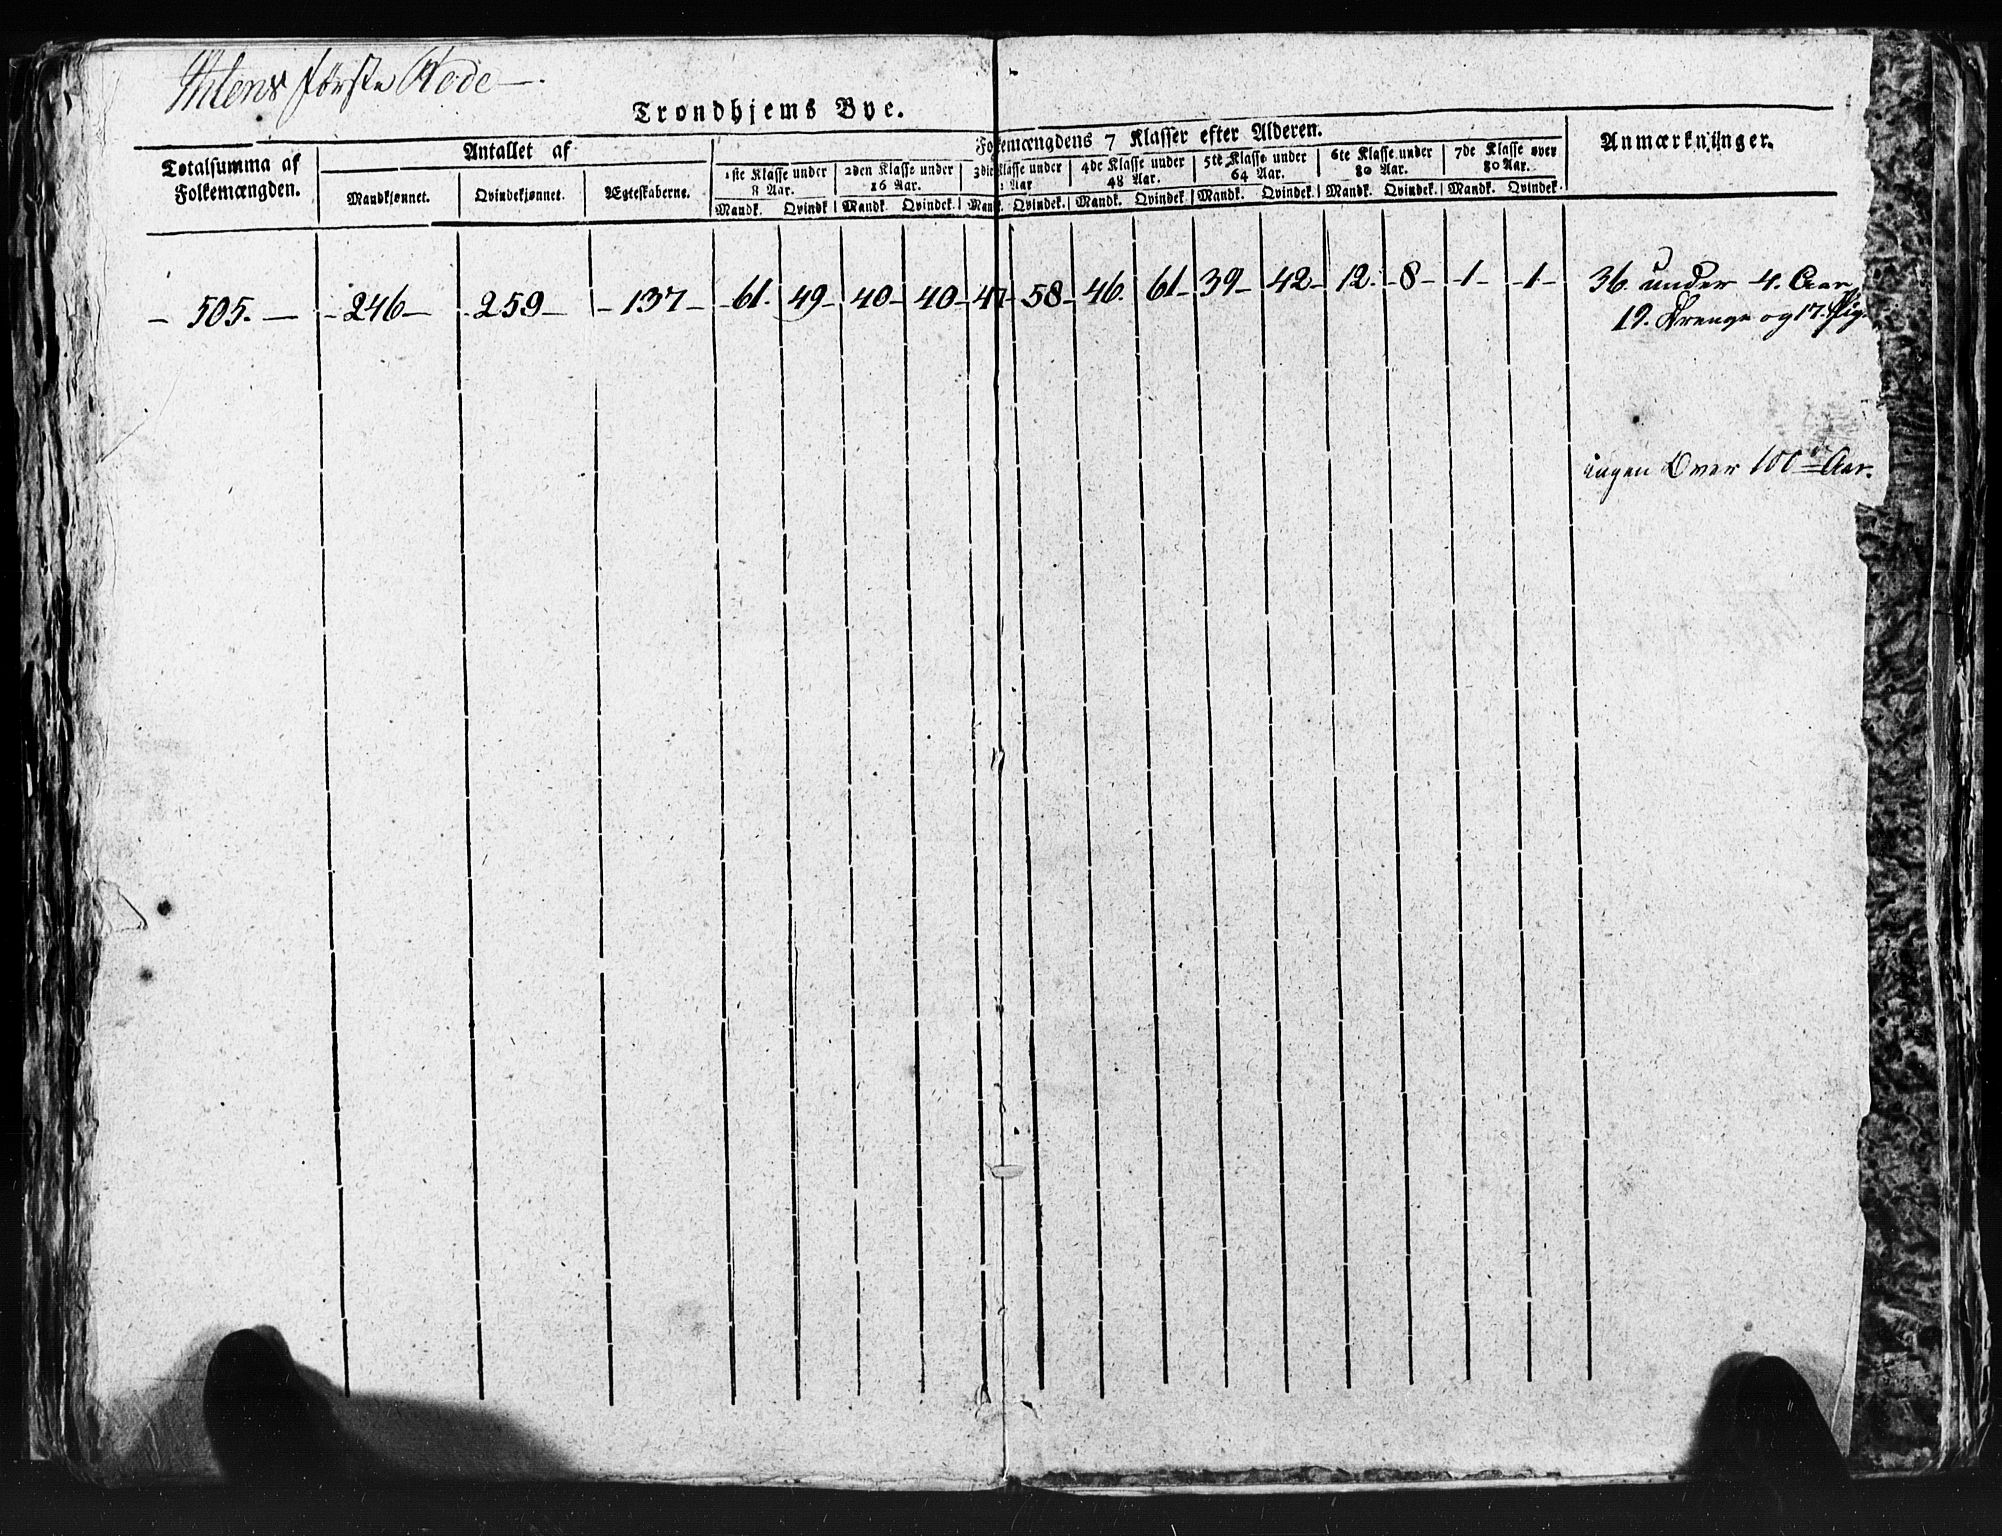 Ihlens første Rode
Trondhjems Bye.
Totalsumma af Folkemængden.
Antallet af
Mandkjønnet. Qvindekjønnet. Ægteskaberne.
Folkemængdens 7 Klasser efter Alderen.
1ste Klasse under 8 Aar. 2den Klasse under 16 Aar. 3die Klasse under Aar 4de Klasse under 48 Aar. 5te Klasse under 64 Aar. 6te Klasse under 80 Aar. 7de Klasse over 80 Aar.
Mandk. Qvindk Mandk. Qvindek. Mandk. Qvindek. Mandk. Qvindek. Mandk. Qvindek. Mandk. Qvindek. Mandk. Qvindek.
Anmærkninger.
505. 246 259 137 61. 49 40 40 47 58 46. 61 39 42 12. 8 1 1 36. under 4. Aar
19. Drenge og 17. Pig
ingen Over 100de Aar.